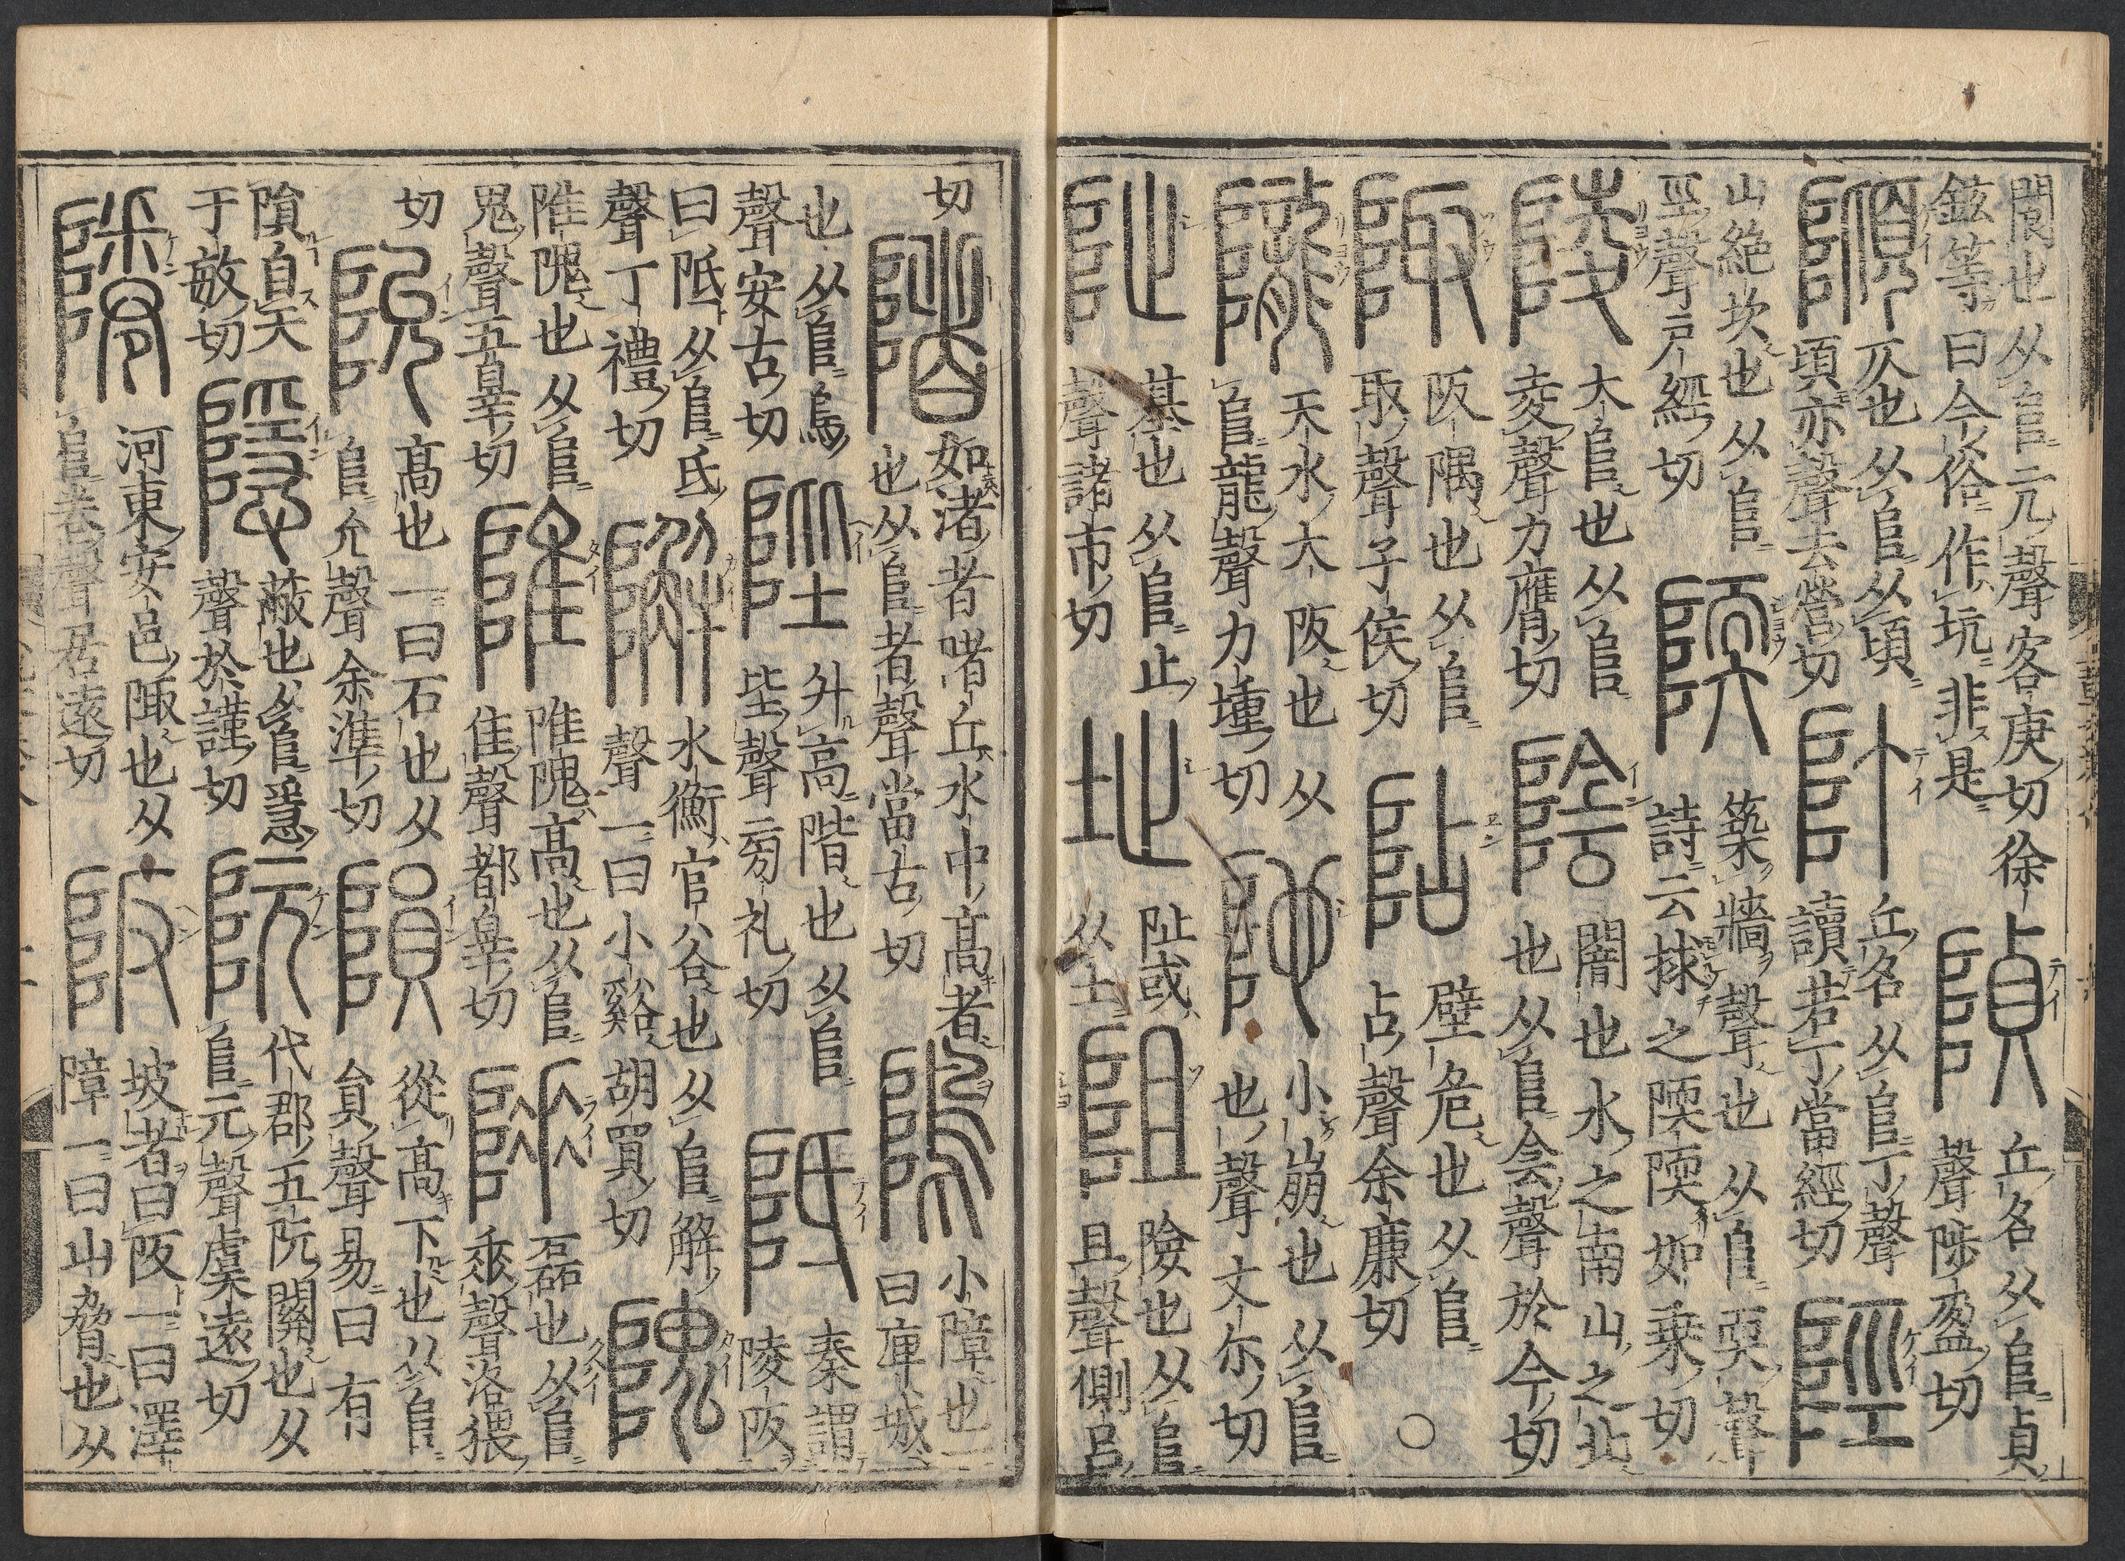 閬也从𨸏亢聲客庚切徐
鉉等曰今俗作坑非是
丘名从𨸏貞
聲陟盈切
仄也从𨸏从頃
頃亦聲去營切
丘名从𨸏丁聲
讀若丁當經切
陘
山絶坎也从𨸏
巠聲户經切
陾
築牆聲也从𨸏耎聲
詩云捄之陾陾如乗切
陵
大𨸏也从𨸏
夌聲力膺切
陰
闇也水之南山之北
也从𨸏侌聲於今切
陬
阪隅也从𨸏
取聲子侯切
阽
壁危也从𨸏
占聲余廉切
○
隴
天水大阪也从
𨸏龍聲力𡍮切
阤
小崩也从𨸏
也聲丈尔切
阯
基也从𨸏止
聲諸市切
址
阯或
从土
阻
險也从𨸏
且聲側吕
切
陼
如渚者陼丘水中髙者
也从𨸏者聲當古切
隖
小障也一
曰庳城
也从𨸏烏
聲安古切
陛
升高階也从𨸏
坒聲㫄礼切
阺
秦謂
陵阪
曰阺从𨸏氐
聲丁禮切
水衡官谷也从𨸏解
聲一曰小谿胡買切
隗
陮隗也从𨸏
鬼聲五辠切
陮
陮隗髙也从𨸏
隹聲都辠切
磊也从𨸏
𠂹聲洛猥
切
阭
髙也一曰石也从
𨸏允聲余準切
隕
從髙下也从𨸏
員聲易曰有
隕自天
于敏切
隱
蔽也从𨸏㥯
聲於謹切
阮
代郡五阮關也从
𨸏元聲虞遠切
河東安邑陬也从
𨸏卷聲居遠切
陂
坡者曰阪一曰澤
障一曰山脅也从